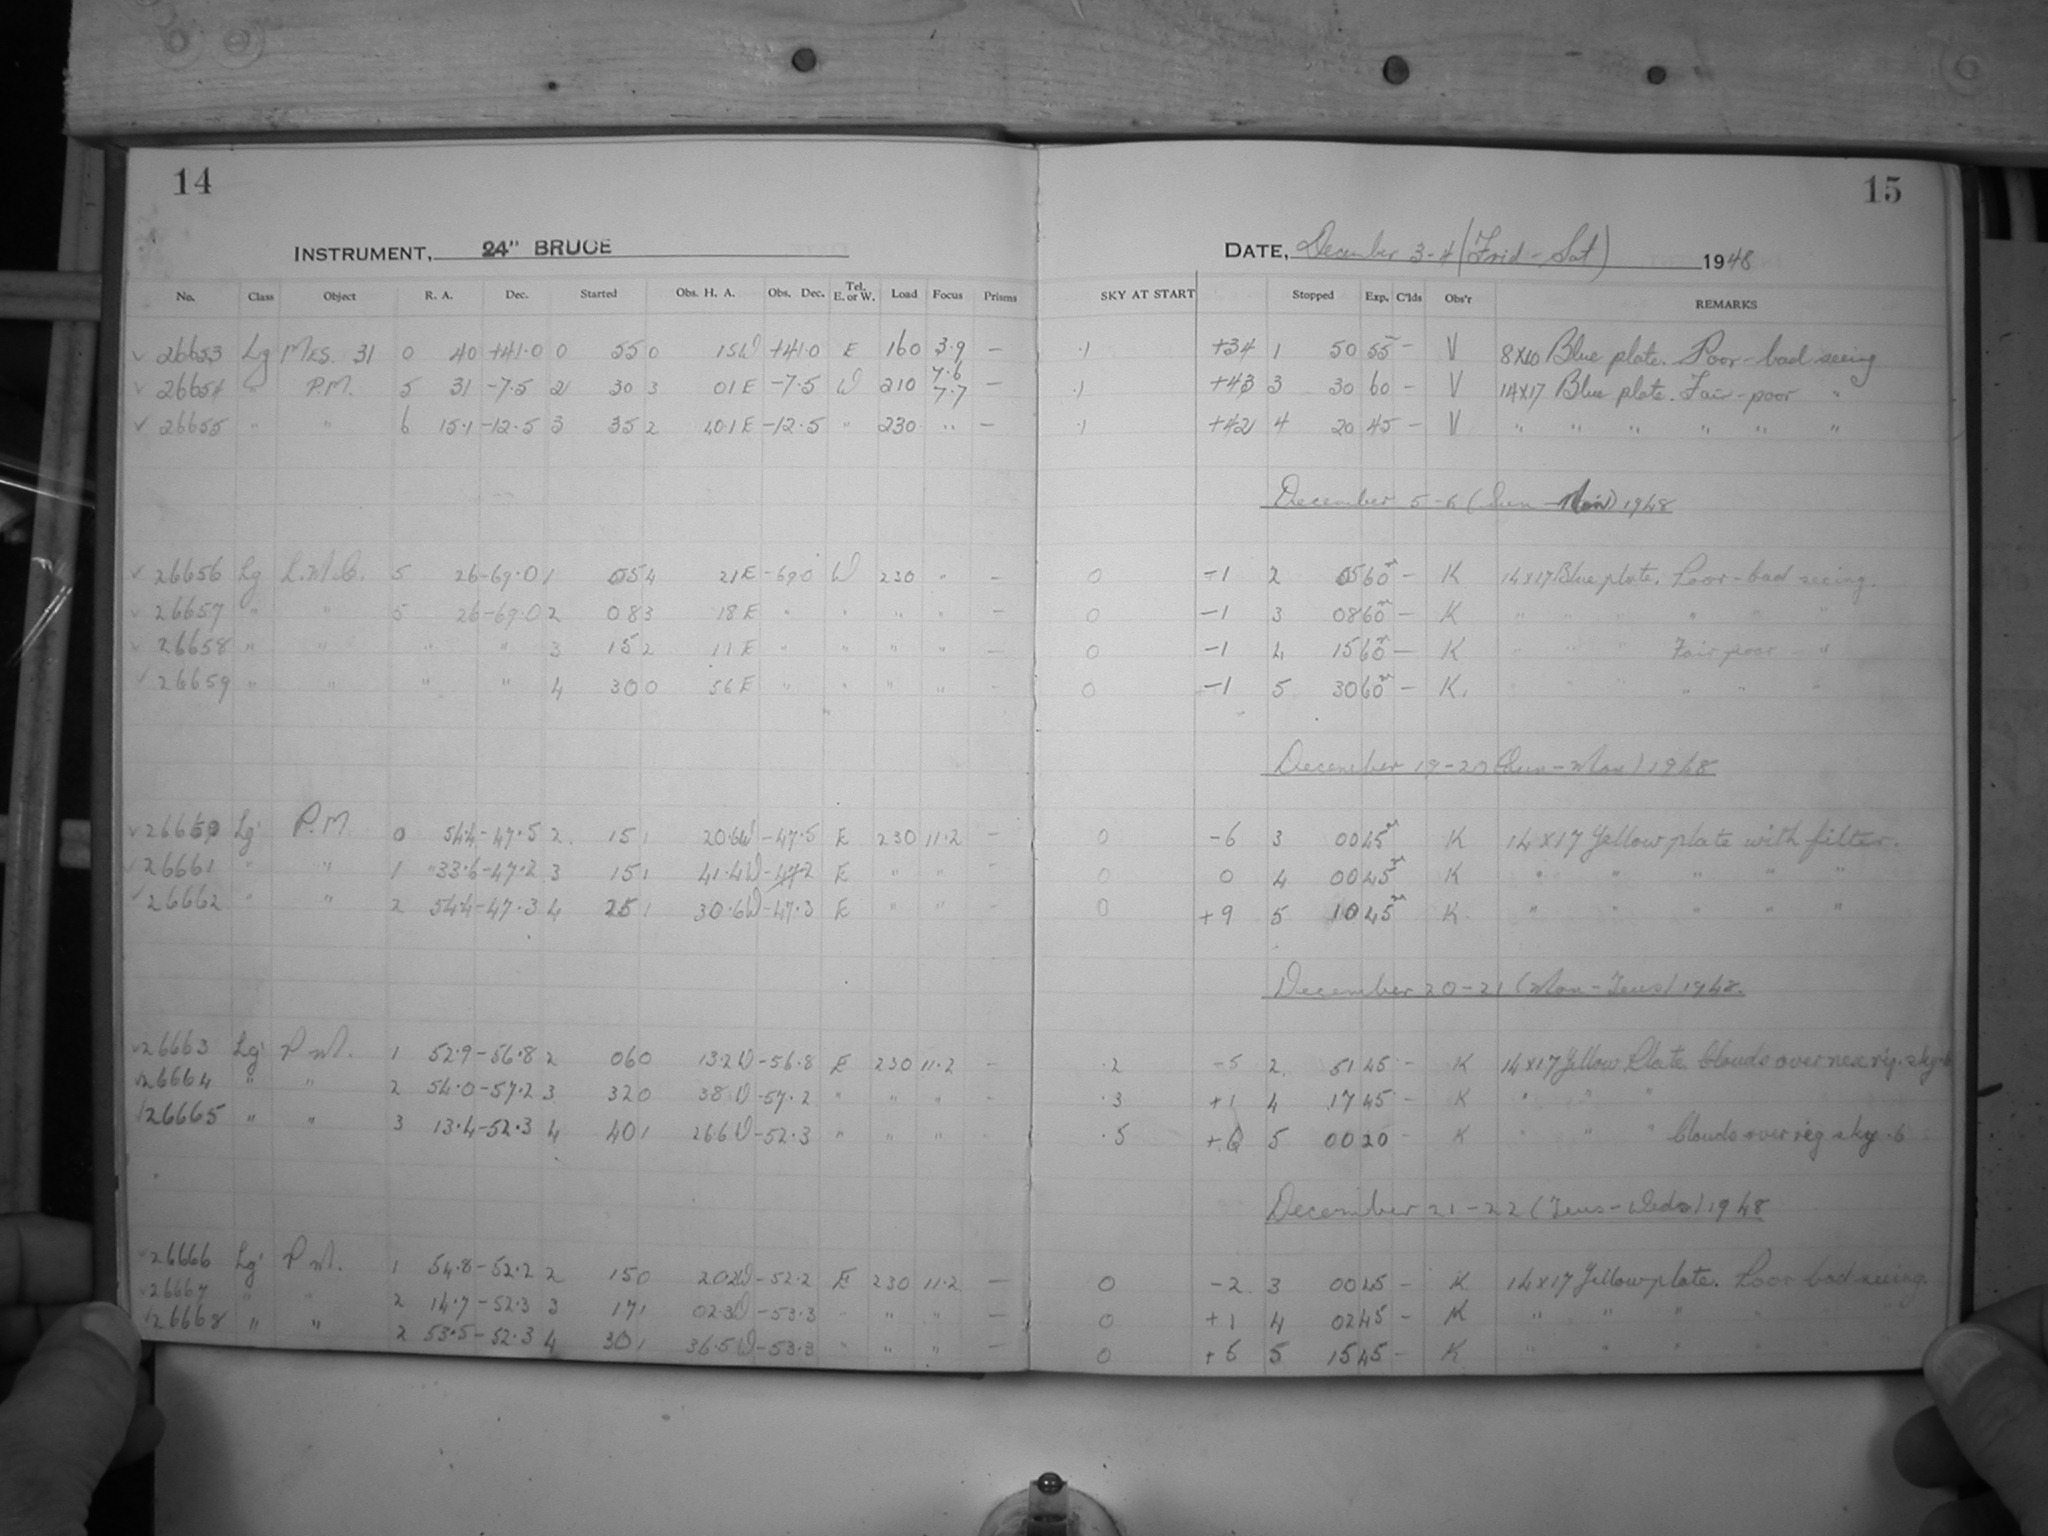 14
15
INSTRUMENT, 24" BRUCE
DATE, December 3-4 (Frid-Sat) 1948
No. Class Object R. A. Dec. Started Obs. H. A. Obs. Dec. Tel. E. or W. Load Focus Prisms SKY AT START Stopped Exp. C'lds Obs'r REMARKS
26653 Lg Mes. 31 0 40 +41.0 0 55 0 15W +41.0 E 160 3.9 — .1 +34 1 50 55 — V 8x10 Blue plate. Poor-bad seeing
26654 " P.M. 5 31 -7.5 2 30 3 01E -7.5 W 210 7.6 7.7 — .1 +43 3 30 60 — V 14x17 Blue plate. Fair-poor "
26655 " " 6 15.1 -12.5 3 35 2 40.1E -12.5 " 230 " — .1 +42 4 20 45 — V " " " " " "
December 5-6 (Sun-Mon) 1948
26656 Lg L.M.C. 5 26 -69.0 1 05 4 21E -69.0 W 230 " — 0 -1 2 05 60m — K 14x17 Blue plate. Poor-bad seeing.
26657 " " 5 26 -69.0 2 08 3 18E " " " " — 0 -1 3 08 60m — K " " " " " "
26658 " " " " 3 15 2 11E " " " " — 0 -1 4 15 60m — K " " " Fair poor "
26659 " " " " 4 30 0 56E " " " " - 0 -1 5 30 60m — K. " " " " " "
December 19-20 (Sun-Mon) 1948
26660 Lg P.M. 0 54.4 -47.5 2 15 1 20.6W -47.5 E 230 11.2 — 0 -6 3 00 45m K 14x17 Yellow plate with filter.
26661 " " 1 33.6 -47.2 3 15 1 41.4W -47.2 E " " 0 0 4 00 45m K " " " " "
26662 " " 2 54.4 -47.3 4 25 1 30.6W -47.3 E " " 0 +9 5 10 45m K " " " " "
December 20-21 (Mon-Tues) 1948.
26663 Lg P.M. 1 52.9 -56.8 2 06 0 13.2W -56.8 E 230 11.2 — .2 -5 2 51 45 - K 14x17 Yellow Plate Clouds over reg. sky .6
26664 " " 2 54.0 -57.2 3 32 0 38W -57.2 " " " - .3 +1 4 17 45 - K " " "
26665 " " 3 13.4 -52.3 4 40 1 26.6W -52.3 " " " - .5 +6 5 00 20 - K " " " Clouds over reg sky .6
December 21-22 (Tues-Weds) 1948
26666 Lg P.M. 1 54.8 -52.2 2 15 0 20.2W -52.2 E 230 11.2 — 0 -2 3 00 45 - K 14x17 Yellow plate. Poor bad seeing.
26667 " " 2 14.7 -52.3 3 17 1 02.3W -53.3 " " " — 0 +1 4 02 45 - K " " " "
26668 " " 2 53.5 -52.3 4 30 1 36.5W -53.3 " " " — 0 +5 5 15 45 - K " " " "